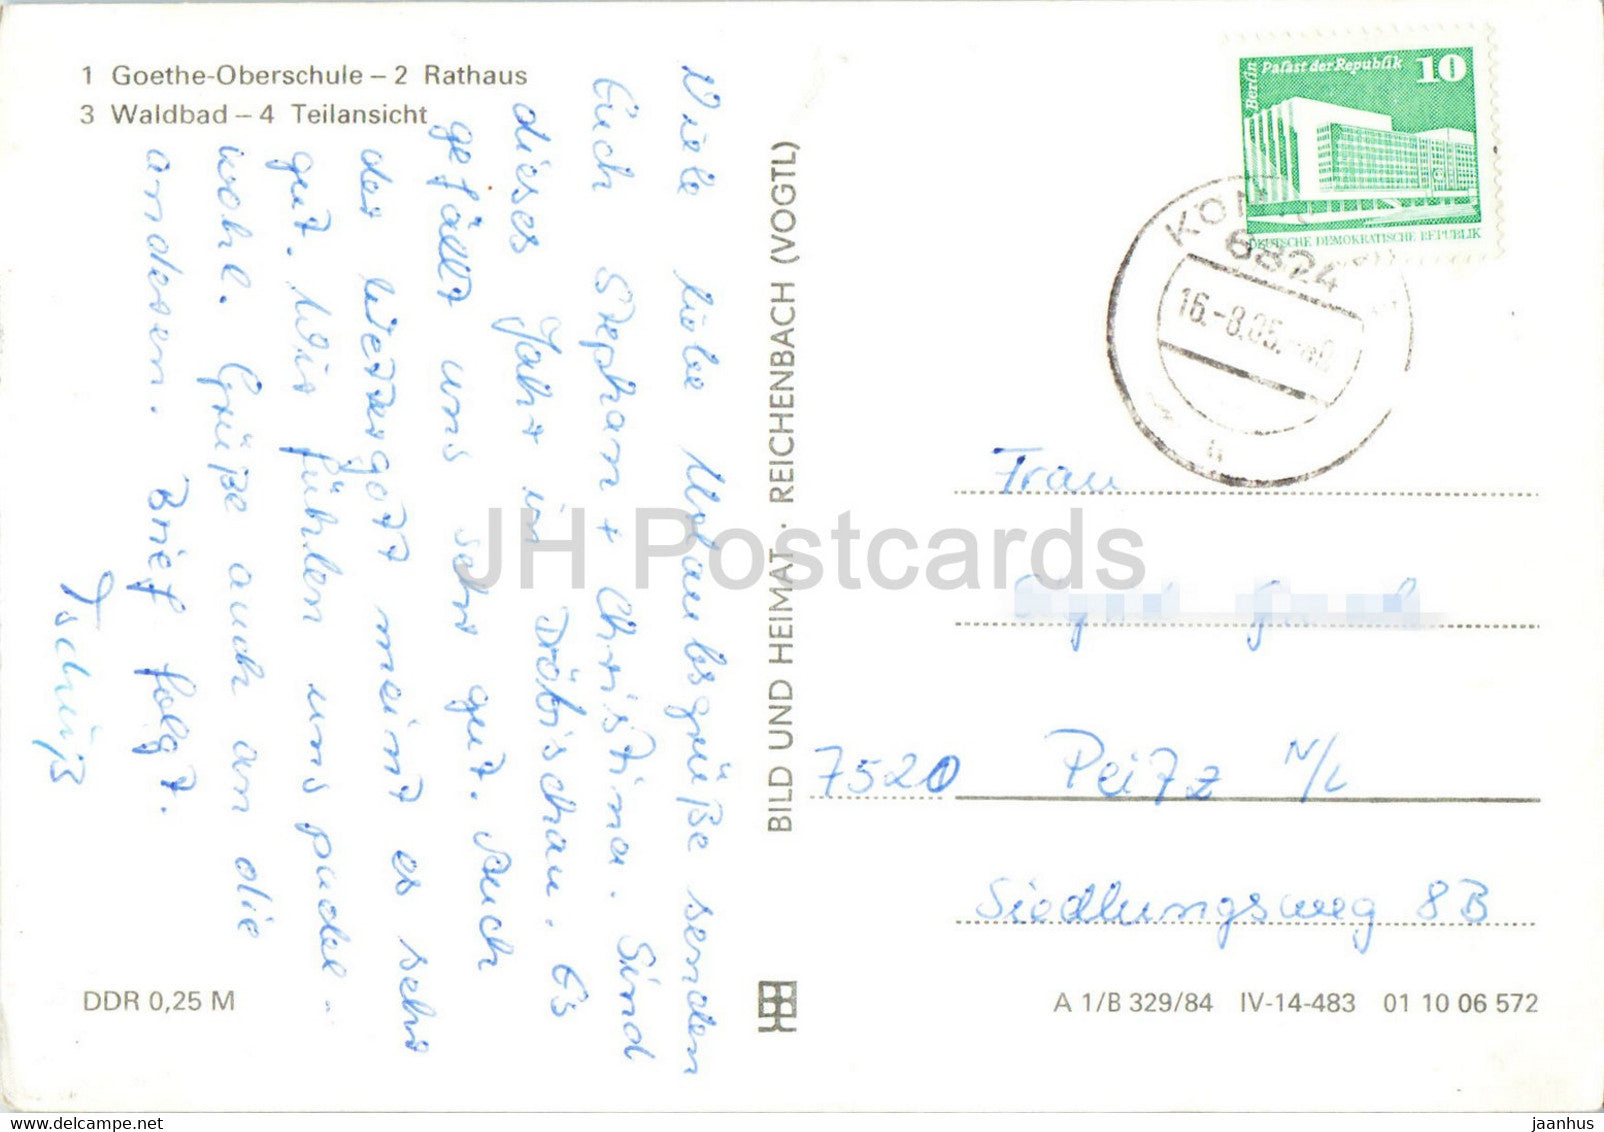 1 Goethe-Oberschule – 2 Rathaus
3 Waldbad – 4 Teilansicht
Viele liebe Urlaubsgrüße senden
Euch Stephan + Christina. Sind
dieses Jahr in Döbischau. Es
gefällt uns sehr gut. Auch
der Wettergott meint es sehr
gut. Wir fühlen uns pudel-
wohl. Grüße auch an die
anderen. Brief folgt.
Tschüß
DDR 0,25 M
BILD UND HEIMAT · REICHENBACH (VOGTL)
Berlin Palast der Republik 10
DEUTSCHE DEMOKRATISCHE REPUBLIK
6824
16.-8.85.
Frau
7520 Peitz N/L
Siedlungsweg 8B
A 1/B 329/84 IV-14-483 01 10 06 572
JH Postcards
www.delcampe.net
jaanhus